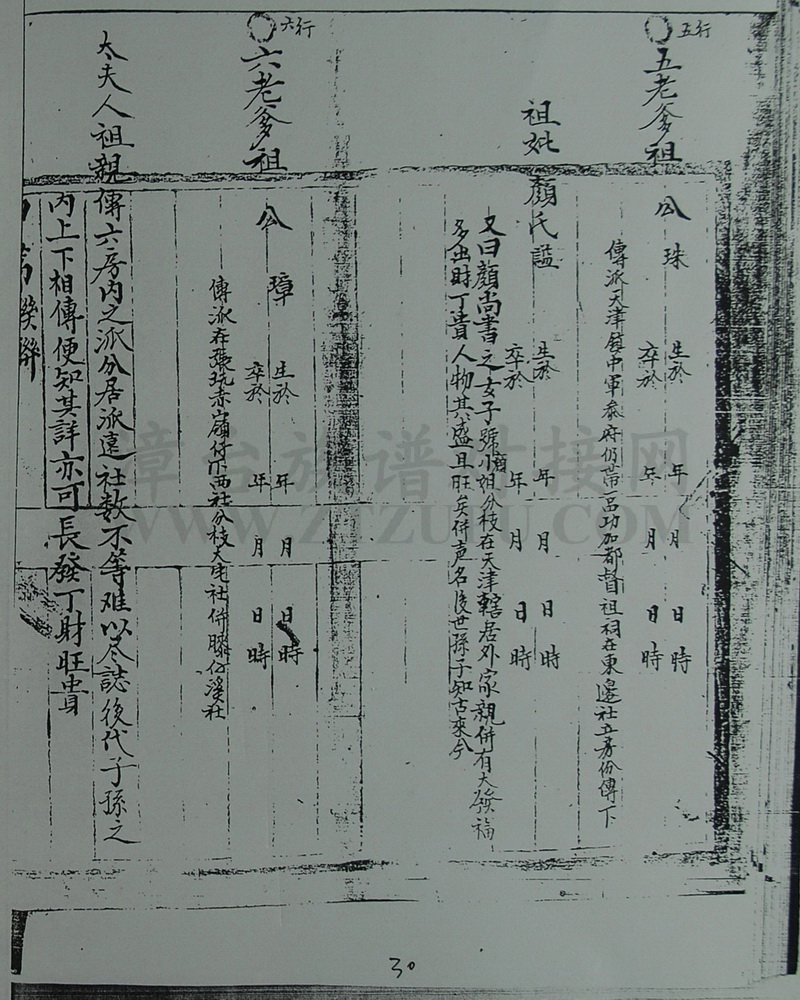 五行
五老爹祖
公 珠 生於 年 月 日 時
卒於 年 月 日 時
傳派天津鎮中軍參府仍帶 功加都督祖祠在東邊社五房份傳下
祖妣 顏氏謚
生於 年 月 日 時
卒於 年 月 日 時
又曰顏尚書之女子號 小姐分枝在天津轄居外家親併有大發福
多 財丁貴人物其盛且旺矣併声名後世孫子知古來今
六行
六老爹祖
公 璋 生於 年 月 日 時
卒於 年 月 日 時
傳派在 坑赤嶺付下西社分枝大宅社併 溪社
太夫人祖親傳六房內之派分居派遠社数不等难以尽誌後代子孫之
內上下相傳便知其詳亦可長發丁財旺貴
漳台族谱对接网
WWW.ZTZUPU.COM
30